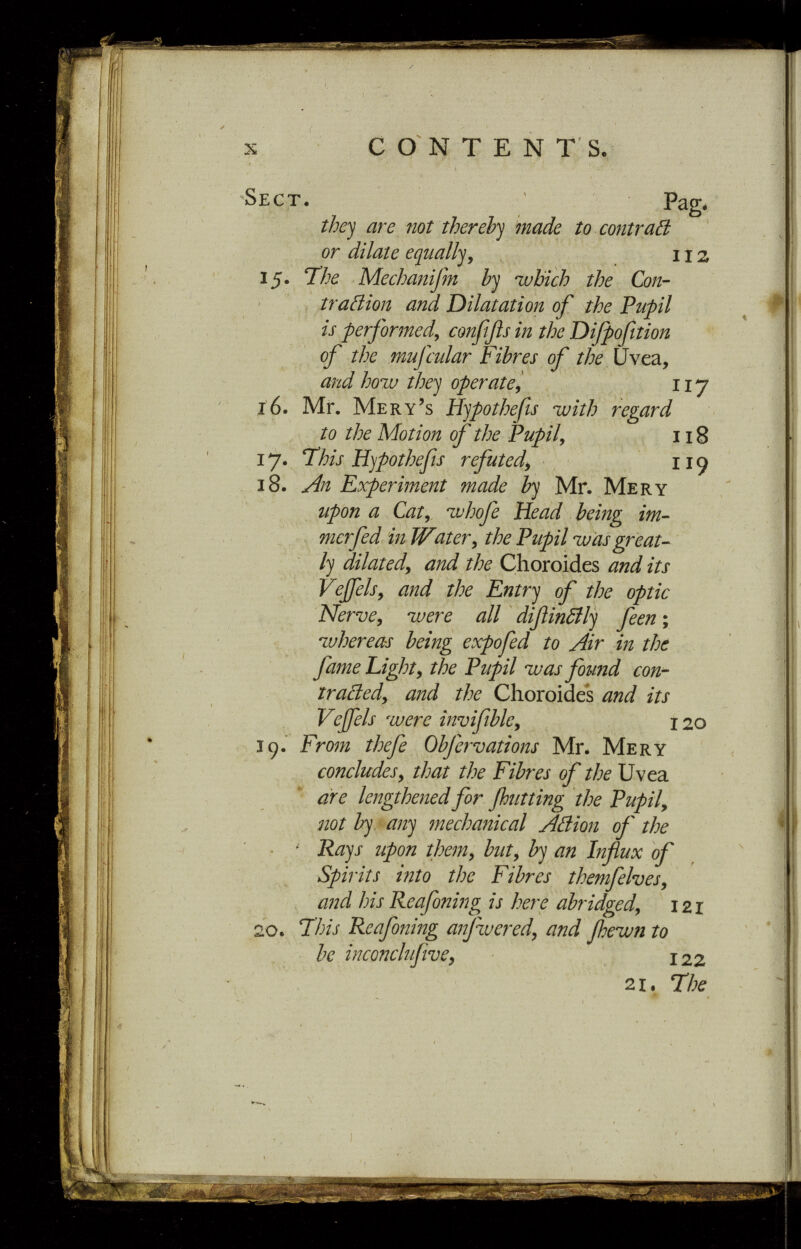 x CONTENTS.
Sect. Pag.
they are not thereby made to contract
or dilate equally, 112
15. The Mechaniſm by which the Con-
traction and Dilatation of the Pupil
is performed, conſiſts in the Diſpoſition
of the muſcular Fibres of the Uvea,
and how they operate, 117
16. Mr. Mery's Hypotheſis with regard
to the Motion of the Pupil, 118
17. This Hypotheſis refuted, 119
18. An Experiment made by Mr. Mery
upon a Cat, whoſe Head being im-
merſed in Water, the Pupil was great-
ly dilated, and the Choroides and its
Veſſels, and the Entry of the optic
Nerve, were all diſtinctly ſeen;
whereas being expoſed to Air in the
ſame Light, the Pupil was found con-
tracted, and the Choroides and its
Veſſels were inviſible, 120
19. From theſe Obſervations Mr. Mery
concludes, that the Fibres of the Uvea
are lengthened for ſhutting the Pupil,
not by any mechanical Action of the
Rays upon them, but, by an Influx of
Spirits into the Fibres themſelves,
and his Reaſoning is here abridged, 121
20. This Reaſoning anſwered, and ſhewn to
be incluſive, 122
21. The